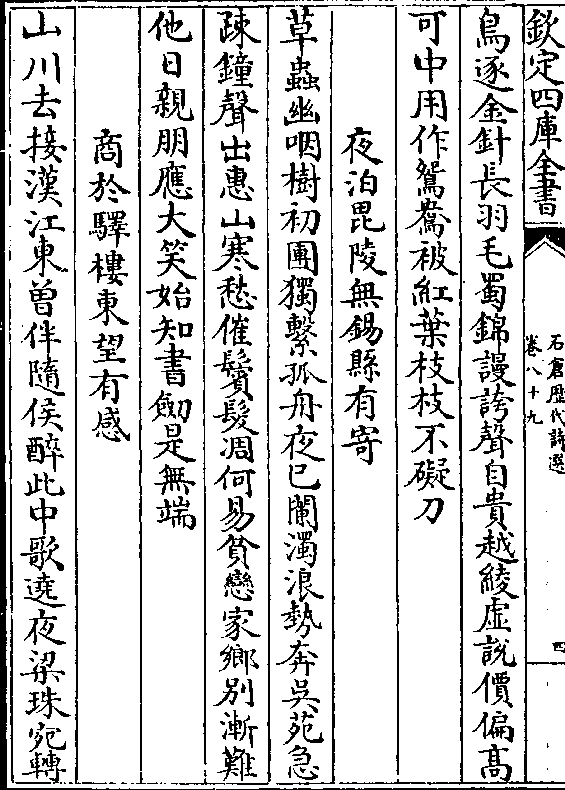 欽定四庫全書
石倉歴代詩選
卷八十九
四
鳥逐金針長羽毛蜀錦謾誇聲自貴越綾虛說價偏高
可中用作鴛鴦被紅葉枝枝不礙刀
夜泊毘陵無錫縣有寄
草蟲幽咽樹初團獨繫孤舟夜已闌濁浪勢奔吳苑急
疎鐘聲出惠山寒愁催鬢髮凋何易貧戀家鄉別漸難
他日親朋應大笑始知書劒是無端
商於驛樓東望有感
山川去接漢江東曾伴隨侯醉此中歌遶夜梁珠宛轉